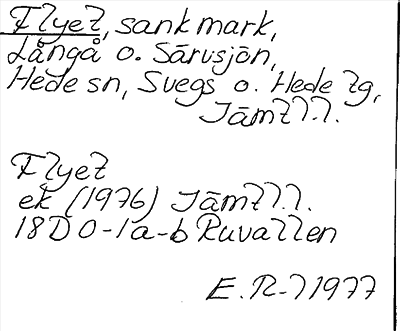 Flyet, sankmark,
Långå o. Särvsjön,
Hede sn, Svegs o. Hede tg,
Jämtl.l.
Flyet
ek (1976) Jämtl.l.
18D 0-1a-b Ruvallen
E.R-l 1977